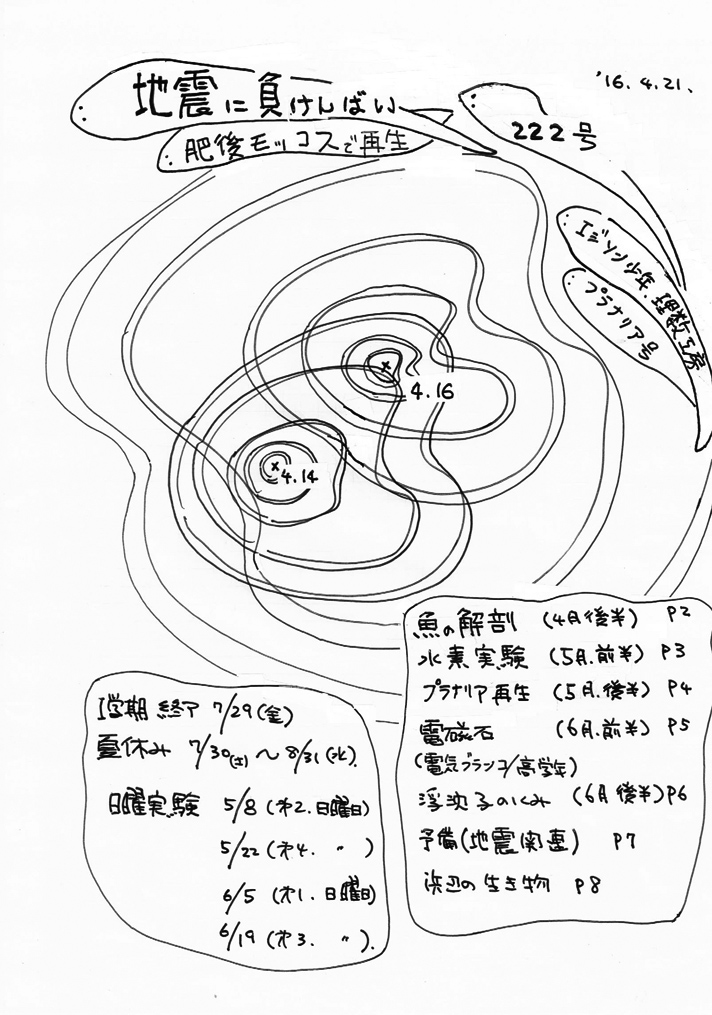 '16.4.21、
地震に負けんばい
222号
肥後モッコスで再生
エジソン少年理数工房
プラナリア号
4.16
4.14
魚の解剖 (4月後半) P2
水素実験 (5月.前半) P3
プラナリア再生 (5月.後半) P4
電磁石 (6月.前半) P5
(電気ブランコ/高学年)
浮沈子のしくみ (6月後半) P6
予備(地震関連) P7
浜辺の生き物 P8
1学期 終了 7/29(金)
夏休み 7/30(土)〜8/31(水).
日曜実験 5/8 (才2.日曜日)
5/22 (才4. 〃 )
6/5 (才1.日曜日)
6/19 (才3. 〃 ).